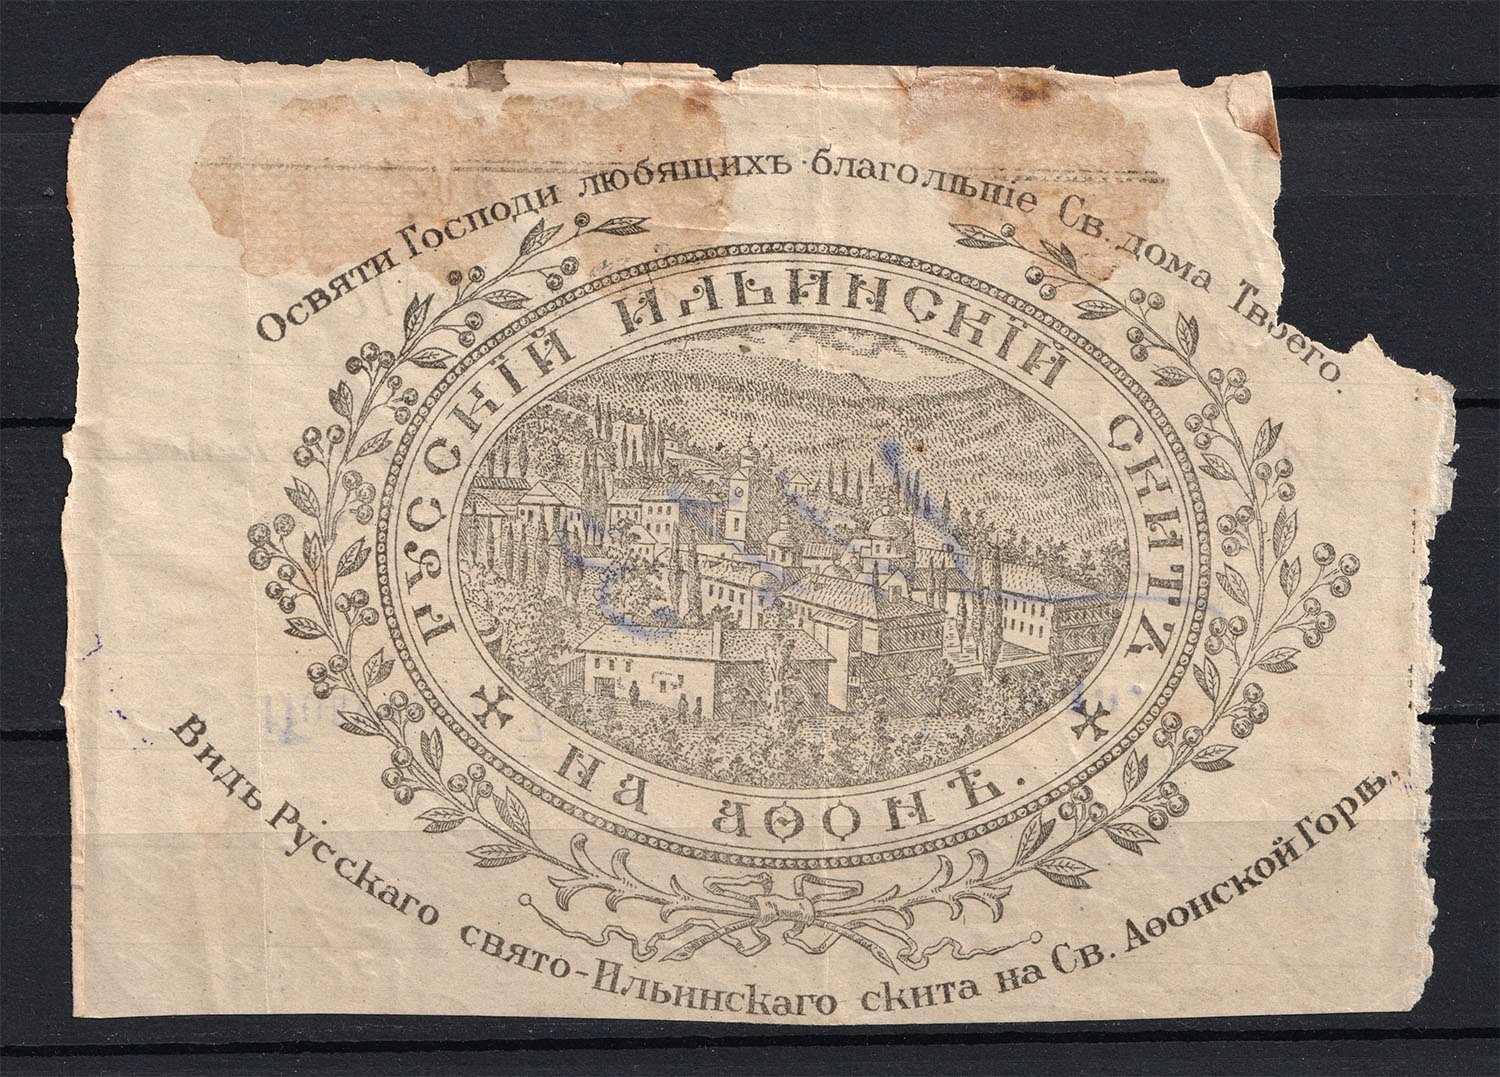 Освяти Господи любящихъ благолѣпіе Св. дома Твоего.
РУССКІЙ ИЛЬИНСКІЙ СКИТЪ
НА АѲОНѢ.
Видъ Русскаго свято-Ильинскаго скита на Св. Аѳонской Горѣ,